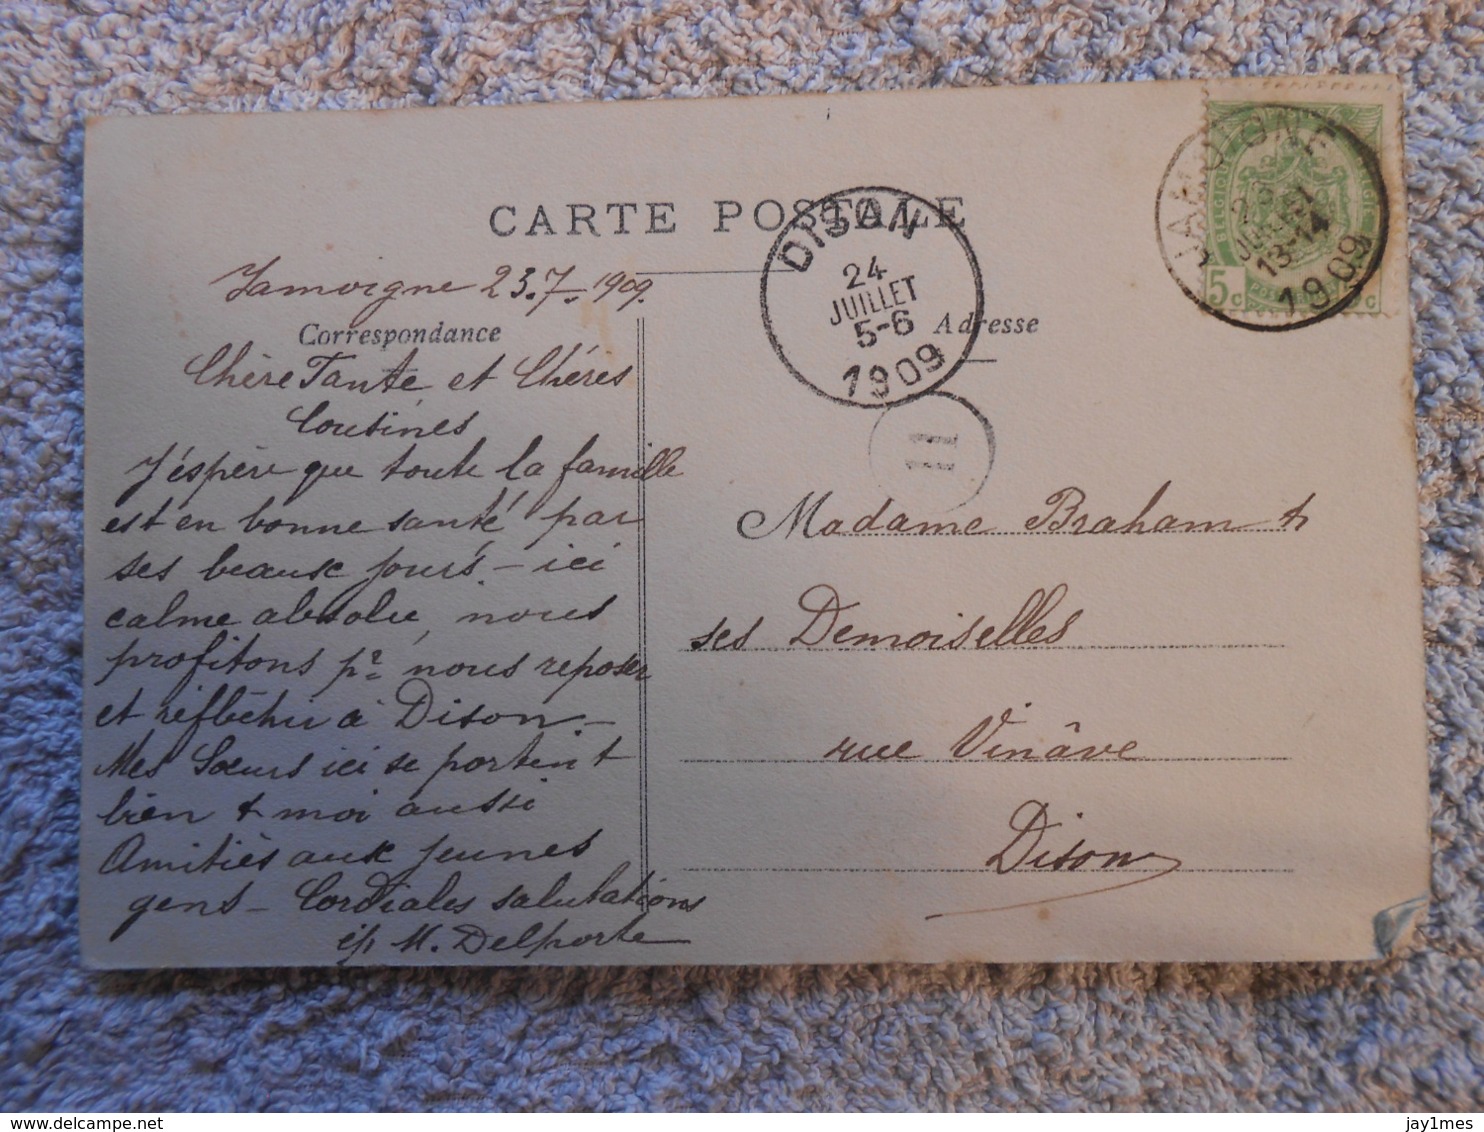 CARTE POSTALE
DISON
24
JUILLET
5-6
1909
JAMOIGNE
23
JUILLET
13-14
1909
BELGIQUE
5c
Jamoigne 23.7.1909.
Correspondance
Adresse
Chère Tante et Chéres
Cousines
J'éspère que toute la famille
est en bonne santé par
ses beaux jours - ici
calme absolu, nous
profitons pr nous reposer
et réflèchir à Dison -
Mes Sœurs ici se portent
bien & moi aussi
Amitiés aux jeunes
gens - Cordiales salutations
M. Delporte
11
Madame Braham &
ses Demoiselles
rue Vinâve
Dison
delcampe.net
jay1mes